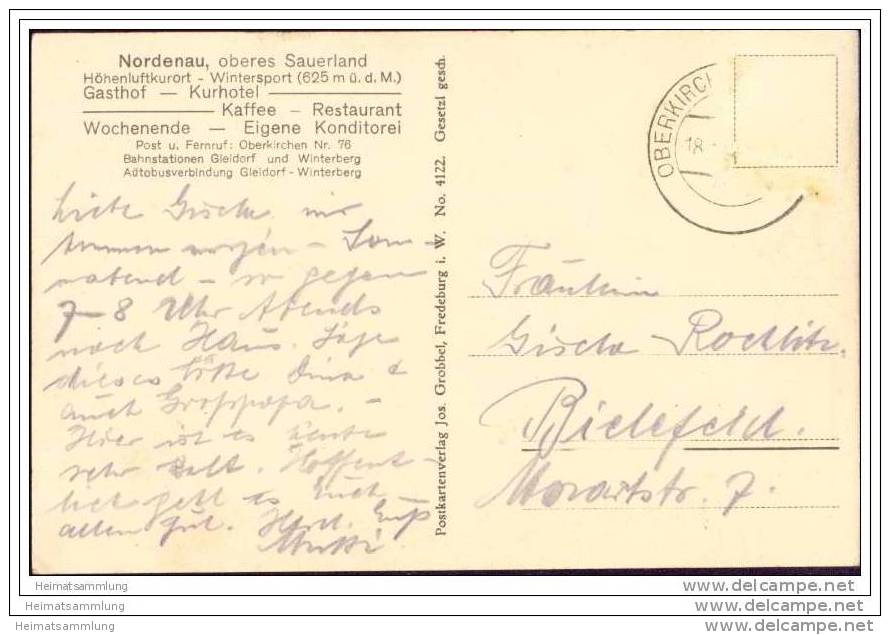 Nordenau, oberes Sauerland
Höhenluftkurort - Wintersport (625 m ü. d. M.)
Gasthof — Kurhotel
Kaffee — Restaurant
Wochenende — Eigene Konditorei
Post u. Fernruf: Oberkirchen Nr. 76
Bahnstationen Gleidorf und Winterberg
Autobusverbindung Gleidorf - Winterberg
Liebe Gisela, wir
kommen morgen - Son-
nabend - so gegen
7-8 Uhr Abends
nach Haus. Sage
dieses bitte Oma &
auch Grosspapa. -
Hier ist es heute
sehr kalt. Hoffent-
lich geht es Euch
allen gut. Herzl. Gruß
Mutti
Postkartenverlag Jos. Grobbel, Fredeburg i. W. No. 4122. Gesetzl gesch.
OBERKIRCH
18
Fräulein
Gisela
Bielefeld.
Mozartstr. 7.
Heimatsammlung
Heimatsammlung
Heimatsammlung
www.delcampe.net
www.delcampe.net
www.delcampe.net